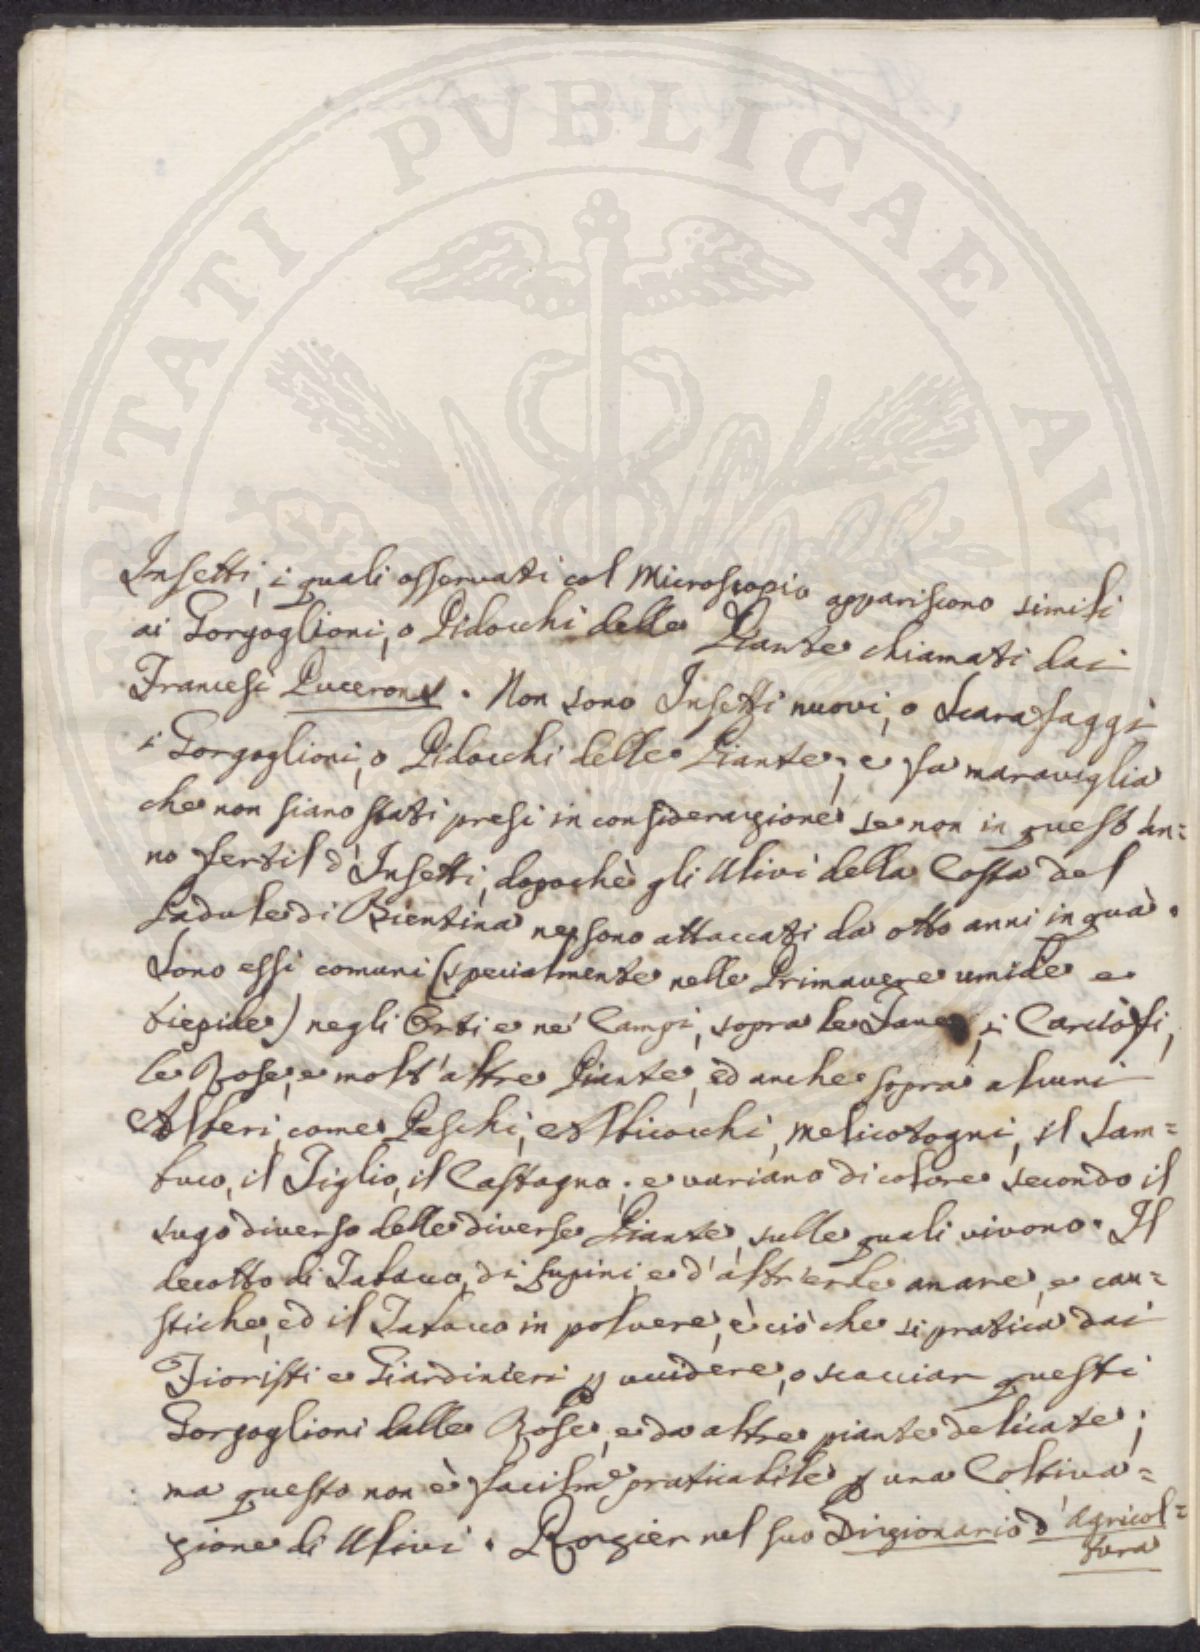 PROSPERITATI PUBLICAE AU
Insetti, i quali osservati col Microscopio appariscono simili
ai Gorgoglioni, o Pidocchi delle Piante chiamati dai
Francesi Pucerons. Non sono Insetti nuovi, o Scarafaggi
i Gorgoglioni, o Pidocchi delle Piante; e fa maraviglia
che non siano stati presi in considerazione se non in quest' an=
no fertil d'Insetti, dopochè gli Ulivi della Costa del
Padule di Bientina ne sono attaccati da otto anni in quà.
Sono essi comuni (specialmente nelle Primavere umide e
tiepide) negli Orti e ne' Campi, sopra le Fave, i Carciofi,
le Rose, e molt' altre Piante, ed anche sopra alcuni
Alberi, come Peschi, Albicocchi, Melicotogni, il Sam=
buco, il Tiglio, il Castagno; e variano di colore secondo il
sugo diverso delle diverse Piante, sulle quali vivono. Il
decotto di Tabacco, di Lupini, e d'altr'erbe amare, e cau=
stiche, ed il Tabacco in polvere, è ciò che si pratica dai
Fioristi e Giardinieri p uccidere, o scacciar questi
Gorgoglioni dalle Rose, e da altre piante delicate;
ma questo non è facilme praticabile p una Coltiva=
zione di Ulivi. Rozier nel suo Dizionario d' Agricol=
tura